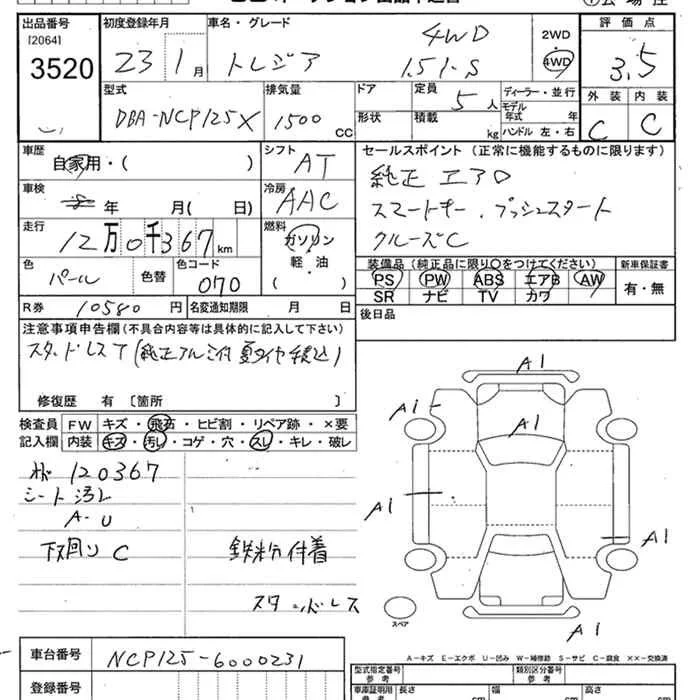 出品番号
[2064]
3520
初度登録年月
23 1月
車名・グレード
4WD
トレジア 1.5i-S
2WD
4WD
評価点
3.5
外装 内装
C C
型式
DBA-NCP125X
排気量
1500 CC
ドア
形状
定員
5人
積載 kg
ディーラー・並行
モデル年式 年
ハンドル 左・右
車歴
自家用・( )
シフト
AT
セールスポイント (正常に機能するものに限ります)
純正エアロ
スマートキー.プッシュスタート
クルーズC
車検
年 月( 日)
冷房
AAC
走行
12万0千367km
燃料
ガソリン
軽・油
( )
色
パール
色替
色コード
070
装備品 (純正品に限り○をつけてください)
PS PW ABS エアB AW
SR ナビ TV カワ
新車保証書
有・無
R券 10580円
名変通知期限 月 日
後日品
注意事項申告欄(不具合内容等は具体的に記入して下さい)
スタッドレスT(純正アルミ付夏タイヤ積込)
修復歴 有 [箇所 ]
検査員 FW キズ・飛石・ヒビ割・リペア跡・×要
記入欄 内装 キズ・汚れ・コゲ・穴・スレ・キレ・破レ
120367
シート汚レ
A-U
下回り C
鉄粉付着
スタッドレス
A1
A1
A1
A1
A1
A1
スペア
A-キズ E-エクボ U-凹み W-補修跡 S-サビ C-腐食 XX-交換済
車台番号
NCP125-6000231
登録番号
型式指定番号
参考
類別区分番号
参考
車庫証明用
参考
長さ cm
幅 cm
高さ cm